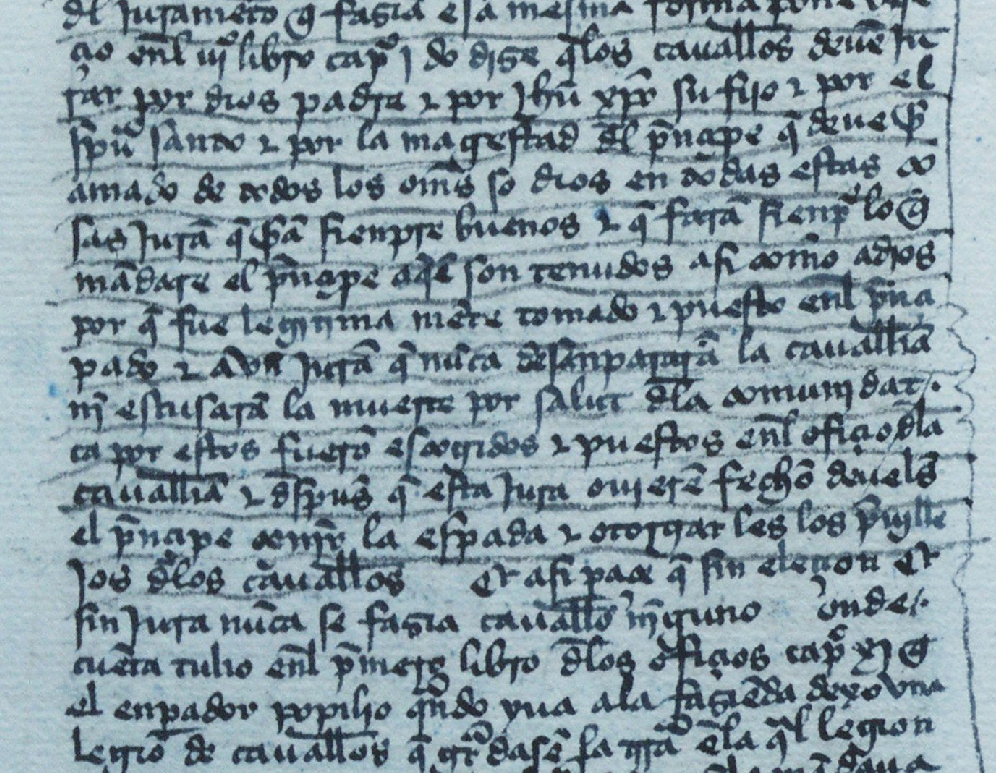 dl juramẽto q̃ fazia esa mesma forma pone
çio enl iijº libro capº j do dize q̃ los cavallos̃ deuẽ ju
rar por dios padre τ por jhũ xp̃o su fijo τ por el
sp̃u santo τ por la magestad dl p̃nçipe q̃ deue ser
amado de todos los om̃s so dios en todas estas co
sas jurã q̃ serã sienpre buenos τ q̃ farã sienpr̃ lo q̃
mãdare el p̃nçipe aq̃l son tenudos asi com̃o adios
por q̃ fue legitima mẽte tomado τ puesto enl p̃nçi
pado τ avn jurã q̃ nũca desanpararã la cavall̃ia
nj̃ escusarã la muerte por salut dla comunidat.
ca por estos fuerõ escogidos τ puestos enl ofiçio dla
cavall̃ia τ dspues̃ q̃ esta jura ovierẽ fecho deuels̃
el p̃nçipe çenjr̃ la espada τ otorgar les los p̃uille
jos dlos cavallos̃ et asi paçe q̃ sin elecion et
sin jura nũca se fazia cavallo̊ nj̃guno onde.
cuẽta tulio enl p̃mero libro dlos ofiçios capº xj q̃
el enpador popilio q̃ndo yua a la faziẽda dexo vna
legiõ de cavallos̃ q̃ gr̃dasẽ la trr̃a ẽla q̃l legion